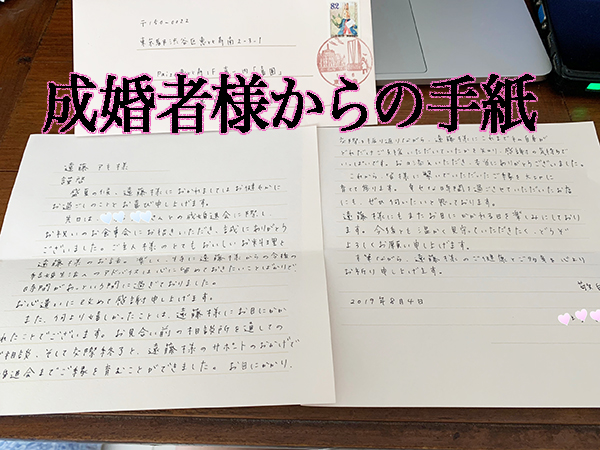 〒150-0022
東京都渋谷区恵比寿南2-3-1
82
成婚者様からの手紙
遠藤アキ様
謹啓
盛夏の候、遠藤様におかれましてはお健やかに
お過ごしのこととお喜び申し上げます。
先日は との成婚退会に際し、
お祝いのお食事会にお招きいただき、誠にありがとう
ございました。ご主人様のとてもおいしいお料理と
遠藤様のお話も楽しく、特に遠藤様からの今後の
結婚生活へのアドバイスは心に留めておきたいことばかりで
時間があっという間に過ぎておりました。
お心遣いに改めて感謝申し上げます。
また、何より嬉しかったことは、遠藤様にお目にかか
れたことでございます。お見合い前の相談所を通しての
ご相談、そして交際終了と、遠藤様のサポートのおかげで
退会までご縁を育むことができました。お目にかかり、
交際を振り返りながら、遠藤様にこれまでその節々が
どれだけご支援いただいていたかと大いに感謝の気持ちで
いっぱいです。お力添えいただき、本当にありがとうございました。
これから、皆様に繋いでいただいたご縁を大切に
育て参ります。幸せな時間を過ごさせていただいたお店
にも、ぜひ伺いたいと思っております。
遠藤様にもまたお目にかかれる日を楽しみにしており
ます。今後とも温かく見守っていただきたく、どうぞ
よろしくお願い申し上げます。
末筆ながら、遠藤様のご健康とご多幸を心より
お祈り申し上げます。
2019年8月4日